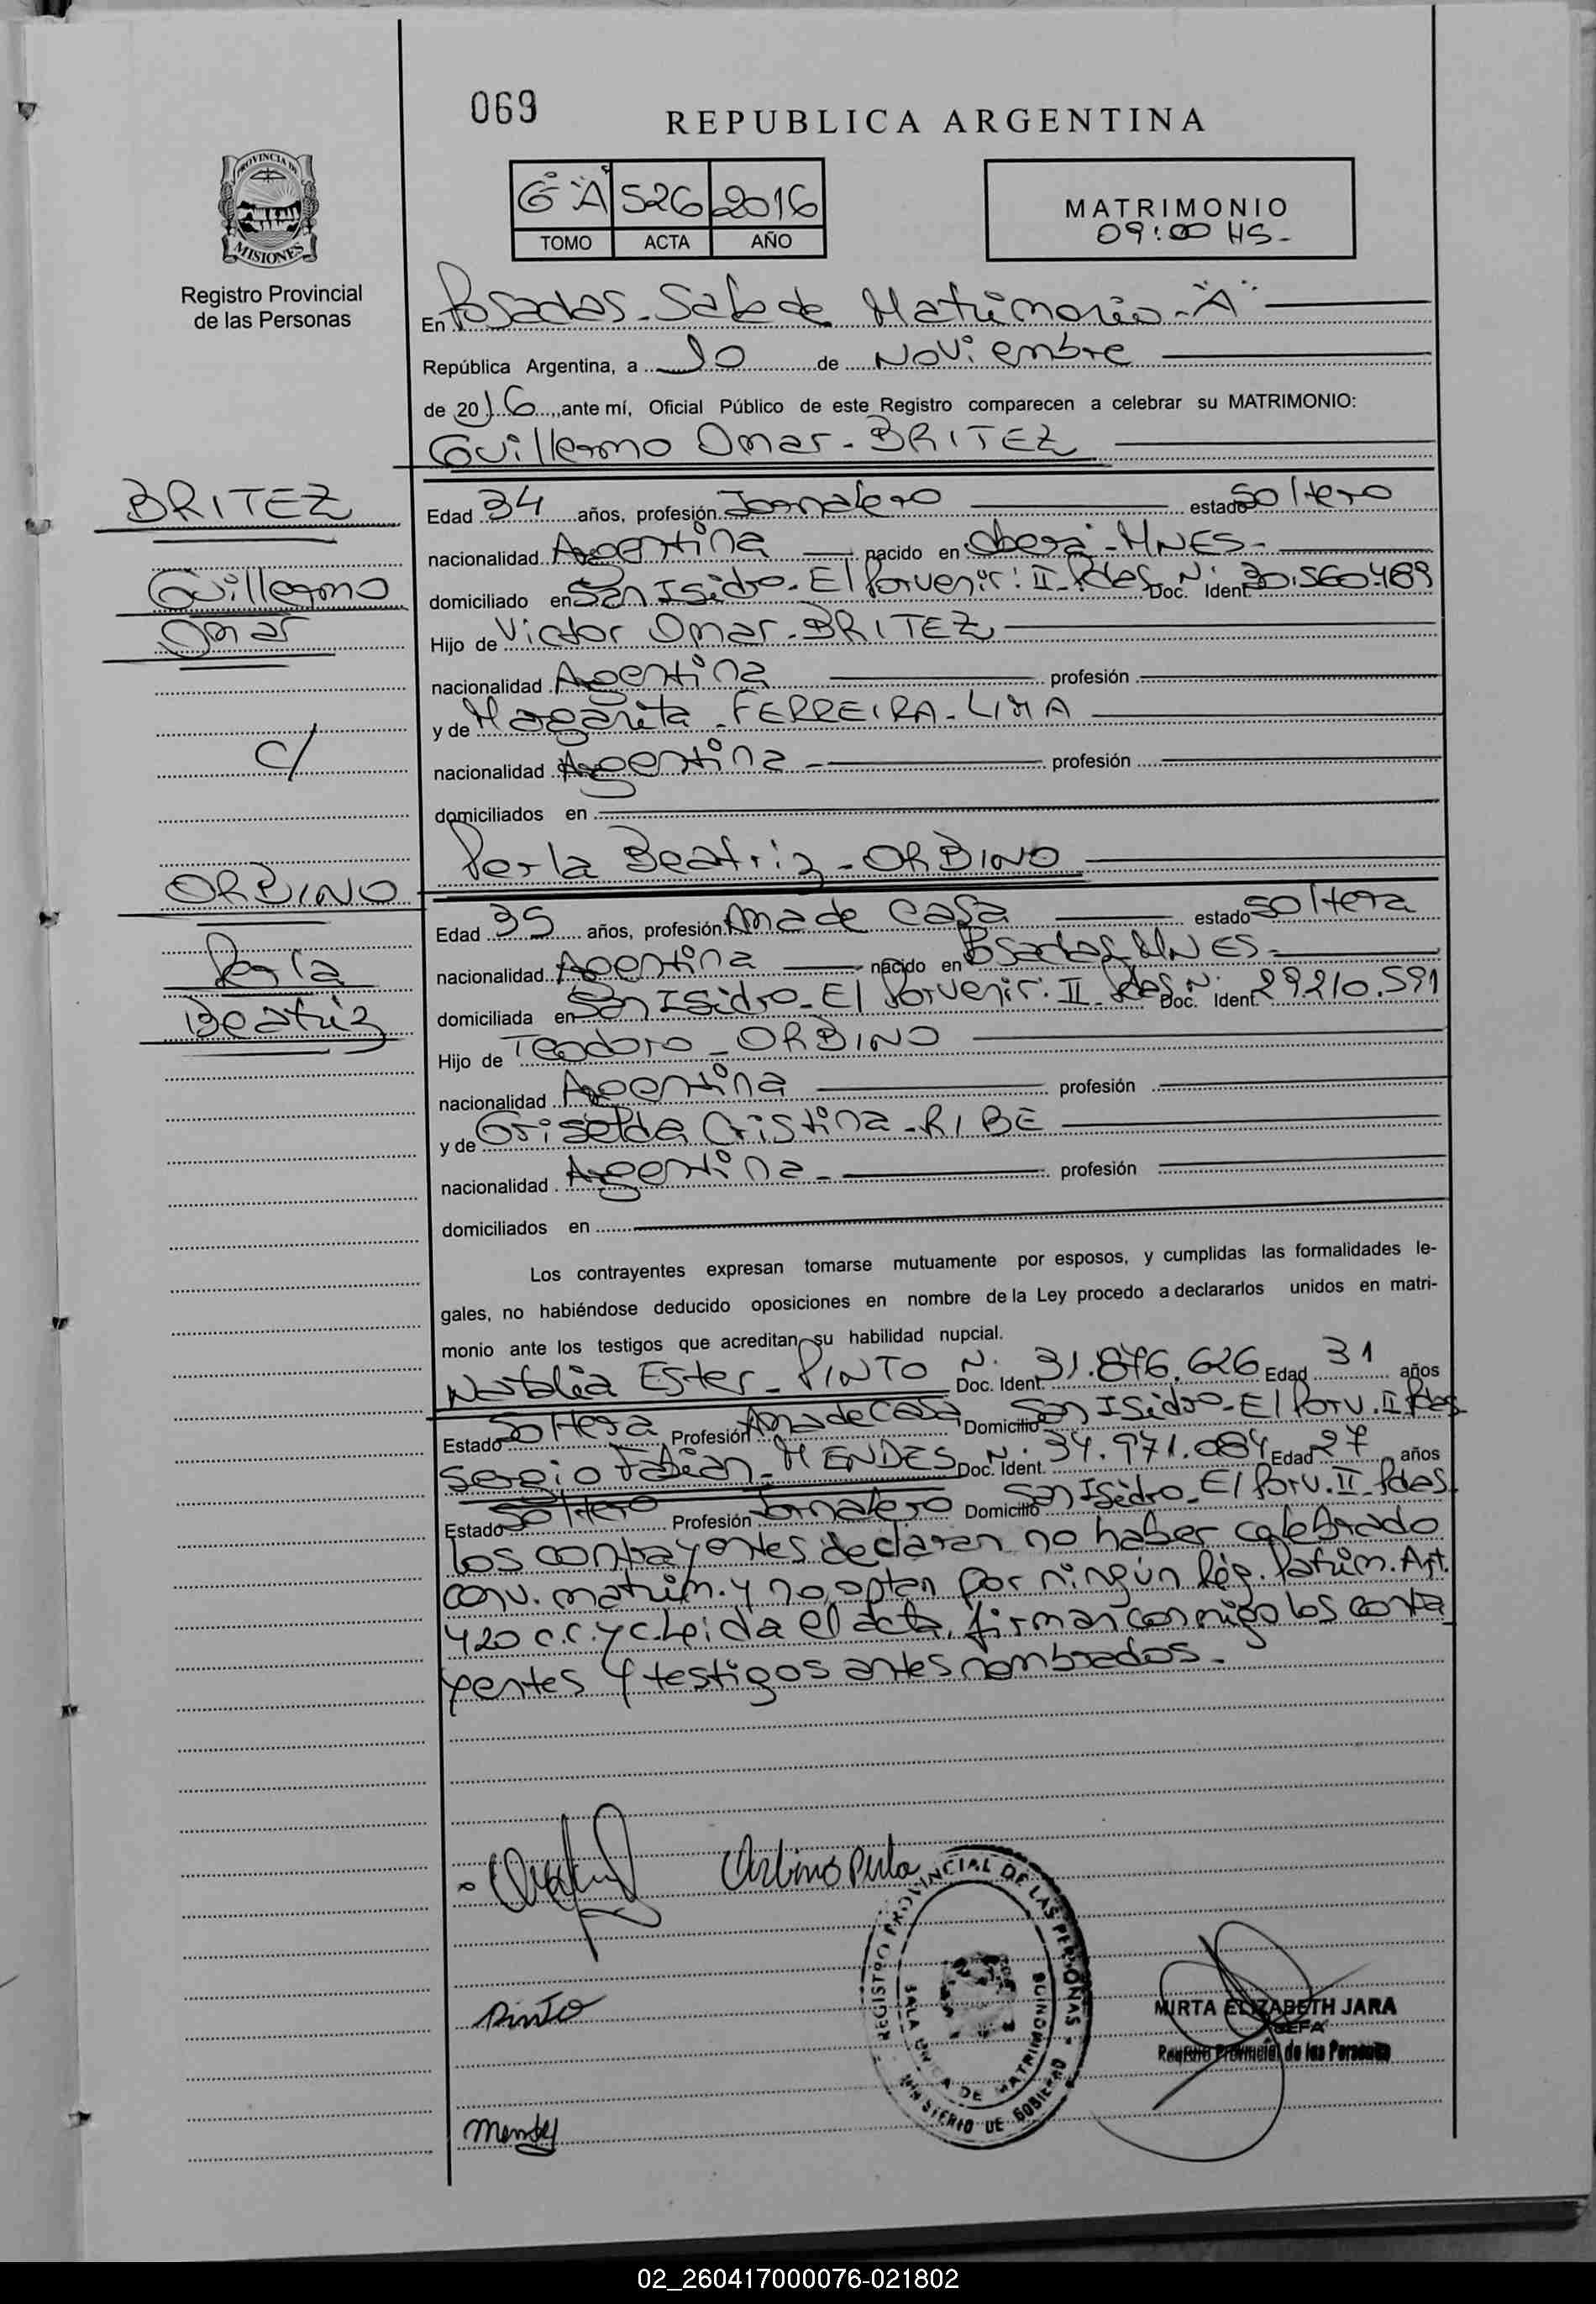 069
REPUBLICA ARGENTINA
6º "A" 526 2016
TOMO ACTA AÑO
MATRIMONIO
09:00 HS-
PROVINCIA DE
MISIONES
Registro Provincial
de las Personas
En Posadas - Sala de Matrimonio - "A"
República Argentina, a 10 de Noviembre
de 2016, ante mí, Oficial Público de este Registro comparecen a celebrar su MATRIMONIO:
Guillermo Omar - BRITEZ
BRITEZ
Guillermo
Omar
c/
ORBINO
Perla
Beatriz
Edad 34 años, profesión Jornalero estado Soltero
nacionalidad Argentina nacido en Oberá - MNES -
domiciliado en San Isidro - El Porvenir: II - Pdas Doc. Ident. Nº 30.560.489
Hijo de Victor Omar - BRITEZ
nacionalidad Argentina profesión
y de Margarita - FERREIRA - LIMA
nacionalidad Argentina - profesión
domiciliados en
Perla Beatriz - ORBINO
Edad 35 años, profesión Ama de Casa estado Soltera
nacionalidad Argentina nacido en Posadas MNES -
domiciliada en San Isidro - El Porvenir: II - Pdas Doc. Ident. Nº 29.210.591
Hijo de Teodoro - ORBINO
nacionalidad Argentina profesión
y de Griselda Cristina - RIBE
nacionalidad Argentina - profesión
domiciliados en
Los contrayentes expresan tomarse mutuamente por esposos, y cumplidas las formalidades le-
gales, no habiéndose deducido oposiciones en nombre de la Ley procedo a declararlos unidos en matri-
monio ante los testigos que acreditan su habilidad nupcial.
Natalia Ester - PINTO Doc. Ident. Nº 31.876.626 Edad 31 años
Estado Soltera Profesión Ama de Casa Domicilio San Isidro - El Porv. II Pdas
Sergio Fabian - MENDES Doc. Ident. Nº 34.971.084 Edad 27 años
Estado Soltero Profesión Jornalero Domicilio San Isidro - El Porv. II - Pdas.
Los contrayentes declaran no haber celebrado
conv. matrim. y no optan por ningún Rég. Patrim. Art.
420 c.c. y c. Leida el acta, firman conmigo los contra
yentes y testigos antes nombrados -
Orbino Perla
Pinto
Mendes
REGISTRO PROVINCIAL DE LAS PERSONAS
SALA UNICA DE MATRIMONIOS
MINISTERIO DE GOBIERNO
MIRTA ELIZABETH JARA
JEFA
Registro Provincial de las Personas
02_260417000076-021802